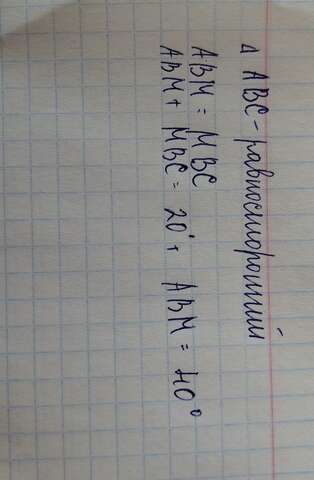 Δ ABC - равносторонний
ABM = MBC
ABM + MBC = 20° + ABM = 40°